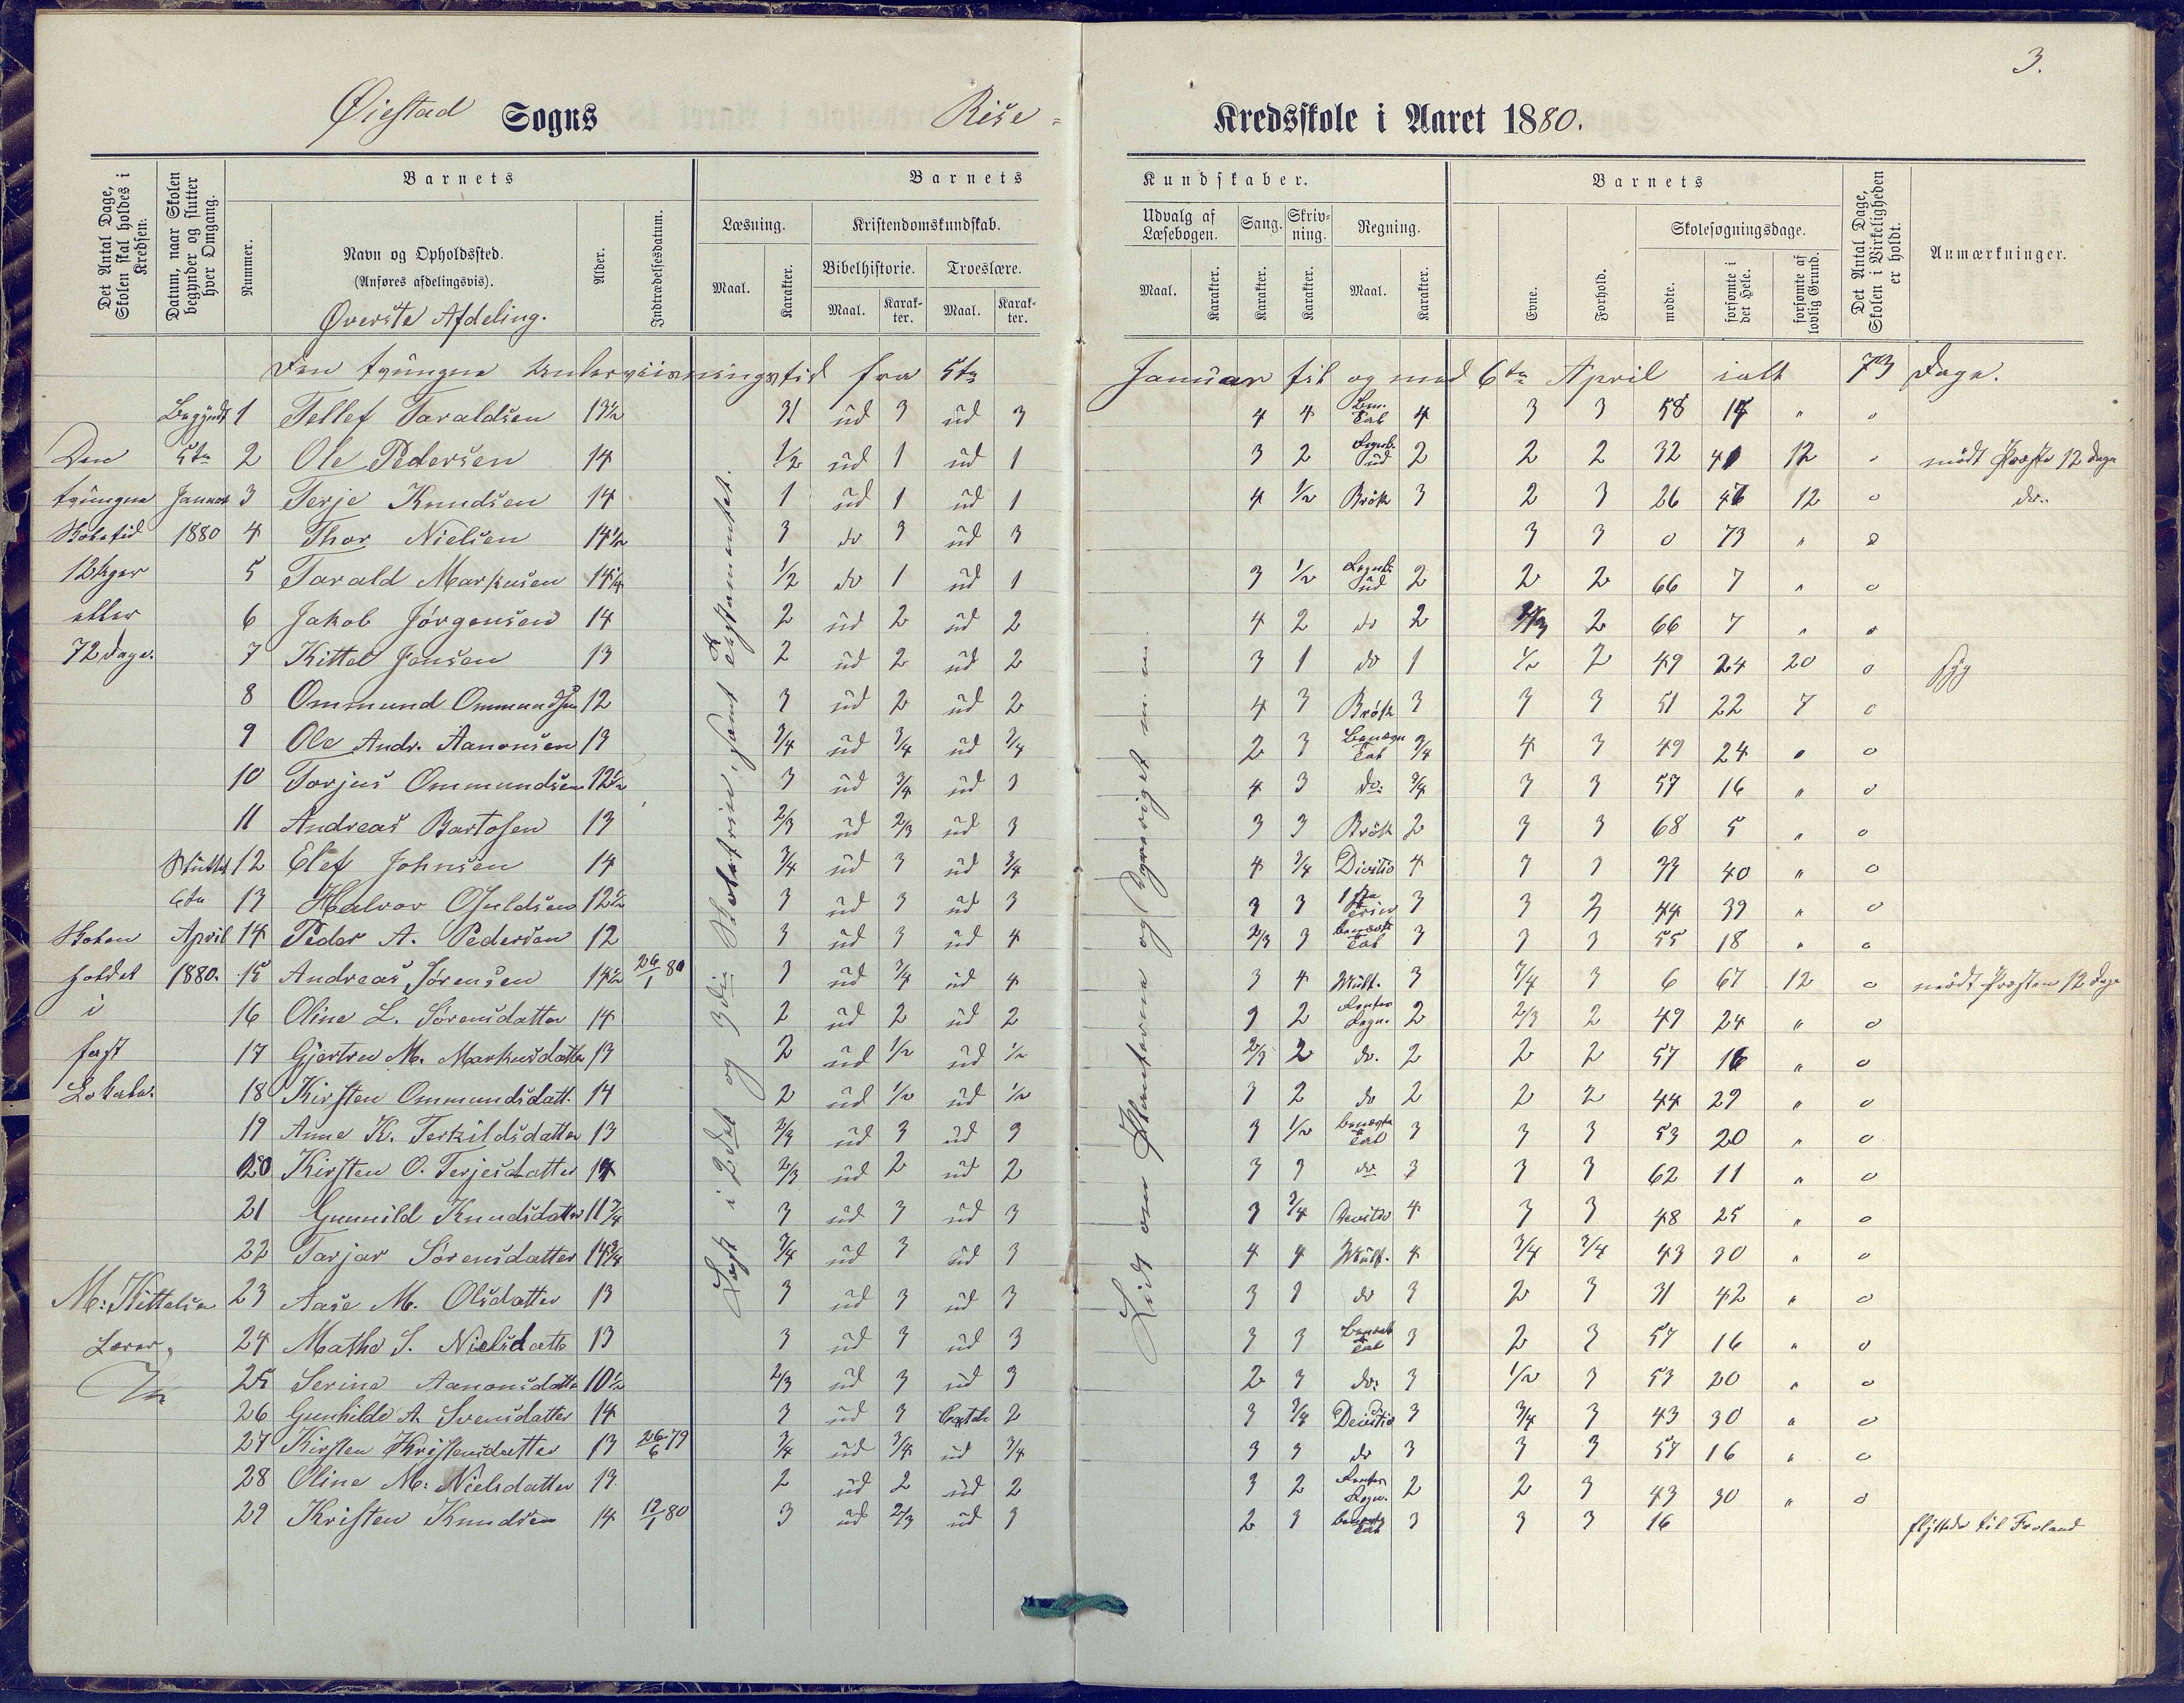 3.
Øiestad Sogns Rise = Kredsskole i Aaret 1880.
Det Antal Dage, Skolen skal holdes i Kredsen.
Datum, naar Skolen begynder og slutter hver Omgang.
Barnets
Nummer.
Navn og Opholdssted.
(Anføres afdelingsvis).
Øverste Afdeling.
Alder.
Indtrædelsesdatum.
Barnets Kundskaber.
Læsning.
Maal. Karakter.
Kristendomskundskab.
Bibelhistorie. Troeslære.
Maal. Karakter. Maal. Karakter.
Udvalg af Læsebogen.
Maal. Karakter.
Sang. Karakter.
Skrivning. Karakter.
Regning.
Maal. Karakter.
Barnets
Evne. Forhold.
Skolesøgningsdage.
mødte. forsømte i det Hele. forsømte af lovlig Grund.
Det Antal Dage, Skolen i Virkeligheden er holdt.
Anmærkninger.
Den tvungne Underviisningstid fra 5te Januar til og med 6te April ialt 73 Dage.
Begyndt 1 Tellef Taraldsen 13½ ud 3 ud 3 4 4 4 3 3 58 " o
Den 5te 2 Ole Pedersen 14 ½ ud 1 ud 1 3 2 ud 2 2 2 32 41 12 mødt Præste 12 Dage
tvungne Januar 3 Terje Knudsen 14 1 ud 1 ud 1 4 ½ Brøk 3 2 3 26 12 o do.
Skoletid 1880 4 Thor Nielsen 14½ 3 do 3 ud 3 3 3 0 73 " o
12 Uger 5 Tarald Markusen 14¼ ½ do 1 ud 1 3 ½ ud 2 2 2 66 7 " o
eller 6 Jakob Jørgensen 14 2 ud 2 ud 2 4 2 do 2 2 66 7 " o
72 Dage. 7 Kittel Jensen 13 2 ud 2 ud 2 3 1 do 1 ½ 2 49 24 20 o syg
8 Ommund Ommundsen 12 3 ud 2 ud 2 4 3 Brøk 3 3 3 51 22 7 o
9 Ole Andr. Aanonsen 13 3/4 ud 3/4 ud 3/4 2 3 Tal 3/4 4 3 49 24 " o
10 Torjus Ommundsen 12½ 3 ud 3/4 ud 3 4 3 do. 3/4 3 3 57 16 " o
11 Andreas Bartosen 13 2/3 ud 2/3 ud 3 3 3 Brøk 2 3 3 68 5 " o
Sluttet 12 Elef Johnsen 14 3/4 ud 3 ud 3/4 4 3/4 Divitio 4 3 3 33 40 " o
6te 13 Halvor Osuldsen 12½ 3 ud 3 ud 3 3 3 3 3 39 " o
Skolen April 14 Peder A. Pedersen 12 3 ud 3 ud 4 2/3 3 Tal 3 3 3 55 18 " o
holdt 1880. 15 Andreas Sørensen 14½ 26/1 80 3 ud 3/4 ud 4 3 4 Mult. 3 3/4 3 6 67 12 o mødt Præsten 12 Dage
i 16 Oline L. Sørensdatter 14 2 ud 2 ud 2 3 2 Regn. 2 2/3 2 49 24 " o
fast 17 Gjertru M. Markusdatter 13 2 ud ½ ud ½ 2/3 2 do. 2 2 2 57 16 " o
Lokale. 18 Kirsten Ommundsdatt. 14 2 ud ½ ud ½ 3 2 do 2 2 2 44 29 " o
19 Anne K. Terkildsdatter 13 2/3 ud 3 ud 3 3 ½ Tal 3 3 3 53 20 " o
20 Kirsten O. Terjesdatter 14 2/3 ud 2 ud 2 3 3 do 3 3 3 62 11 " o
21 Gunnild Knudsdatter 11 3/4 3 ud 3 ud 3 3 3/4 4 3 3 48 25 " o
22 Tarjar Sørensdatter 14 3/4 3/4 ud 3 ud 3 4 4 Mult. 4 3/4 3/4 43 30 " o
M: Kittelsen 23 Aase M. Olsdatter 13 3 ud 3 ud 3 3 3 do 3 2 3 31 42 " o
Lærer. 24 Mathe S. Nielsdatter 13 3 ud 3 ud 3 3 3 Tal 3 2 3 57 16 " o
25 Serine Aanonsdatter 10½ 2/3 ud 3 ud 3 2 3 do: 3 ½ 3 53 20 " o
26 Gunhilde A. Svensdatter 14 3 ud 3 2 3 3/4 3 3/4 3 43 30 " o
27 Kirsten Kristensdatter 13 26/6 79 3/4 ud 3/4 ud 3/4 3 3 do 3 3 3 57 16 " o
28 Oline M: Nielsdatter 13 2 ud 2 ud 2 3 2 Regn. 2 2 3 43 30 " o
29 Kristen Knudsen 14 12/1 80 3 ud 2/3 ud 3 2 3 Tal 3 3 3 16 flyttede til Froland
Læst i 2det og 3die Skoletrin, samt Testamentet.
Lidt om Planterne og Dyreriget m. m.